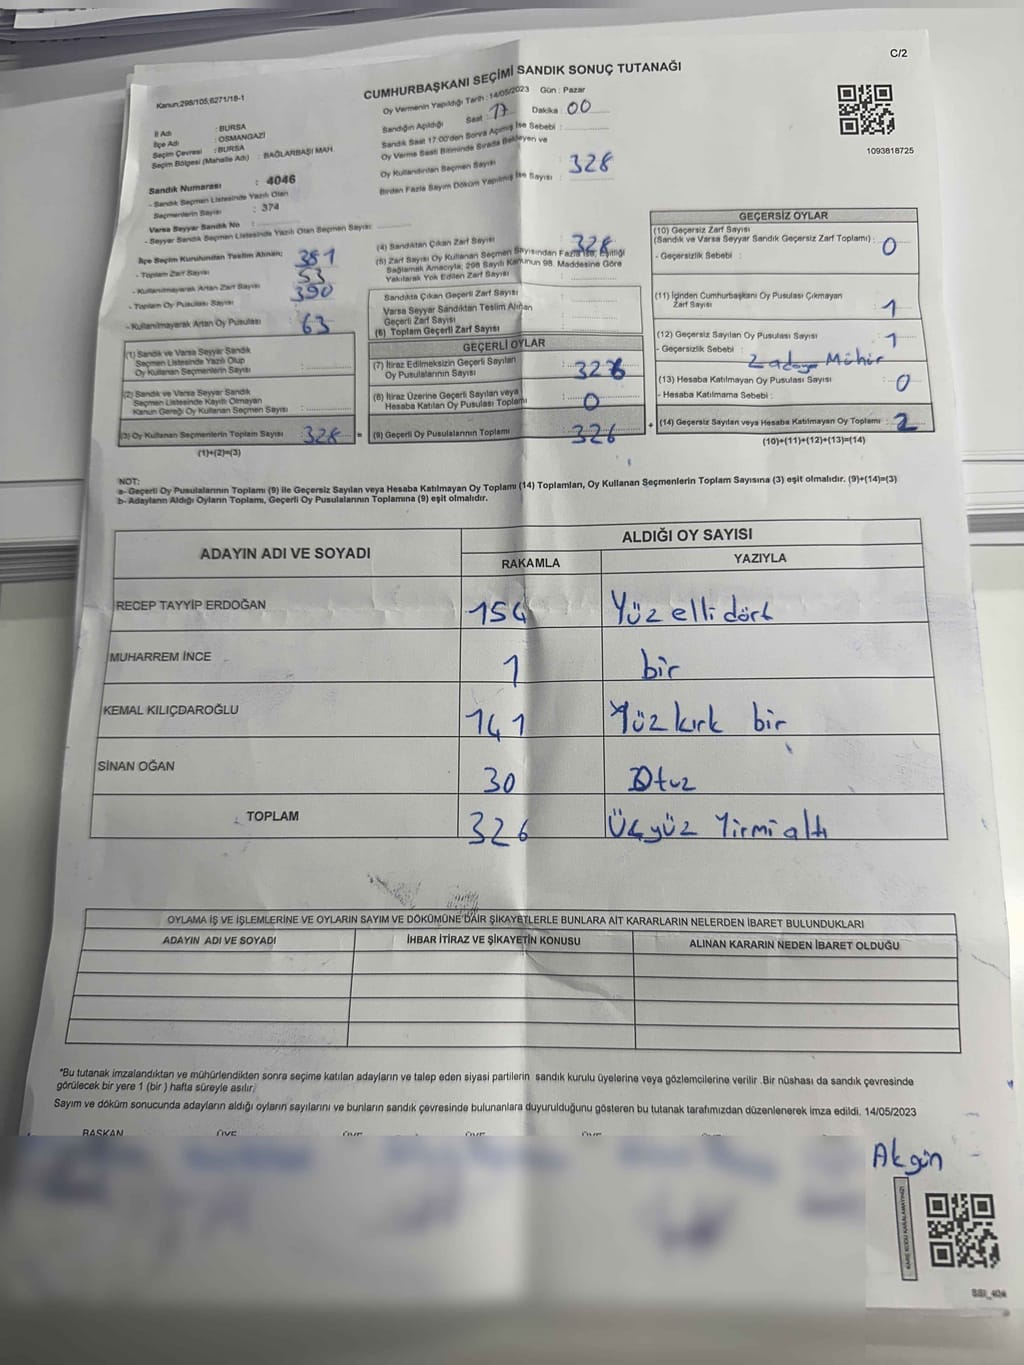 C/2
CUMHURBAŞKANI SEÇİMİ SANDIK SONUÇ TUTANAĞI
Kanun;298/105;6271/18-1
Oy Vermenin Yapıldığı Tarih : 14/05/2023 Gün : Pazar
Sandığın Açıldığı Saat : 17 Dakika : 00
Sandık Saat 17:00'den Sonra Açılmış İse Sebebi :
Oy Verme Saati Bitiminde Sırada Bekleyen ve
Oy Kullandırılan Seçmen Sayısı 328
Birden Fazla Sayım Döküm Yapılmış İse Sayısı :
1093818725
İl Adı : BURSA
İlçe Adı : OSMANGAZİ
Seçim Çevresi : BURSA
Seçim Bölgesi (Mahalle Adı) : BAĞLARBAŞI MAH.
Sandık Numarası : 4046
- Sandık Seçmen Listesinde Yazılı Olan
Seçmenlerin Sayısı : 374
Varsa Seyyar Sandık No :
- Seyyar Sandık Seçmen Listesinde Yazılı Olan Seçmen Sayısı :
İlçe Seçim Kurulundan Teslim Alınan;
- Toplam Zarf Sayısı 381
- Kullanılmayarak Artan Zarf Sayısı 53
- Toplam Oy Pusulası Sayısı 390
- Kullanılmayarak Artan Oy Pusulası : 63
(1) Sandık ve Varsa Seyyar Sandık
Seçmen Listesinde Yazılı Olup
Oy Kullanan Seçmenlerin Sayısı :
(2) Sandık ve Varsa Seyyar Sandık
Seçmen Listesinde Kayıtlı Olmayan
Kanun Gereği Oy Kullanan Seçmen Sayısı :
(3) Oy Kullanan Seçmenlerin Toplam Sayısı 328 =
(1)+(2)=(3)
(4) Sandıktan Çıkan Zarf Sayısı 328
(5) Zarf Sayısı Oy Kullanan Seçmen Sayısından Fazla İse, Eşitliği
Sağlamak Amacıyla; 298 Sayılı Kanunun 98. Maddesine Göre
Yakılarak Yok Edilen Zarf Sayısı :
Sandıkta Çıkan Geçerli Zarf Sayısı :
Varsa Seyyar Sandıktan Teslim Alınan
Geçerli Zarf Sayısı
(6) Toplam Geçerli Zarf Sayısı
GEÇERLİ OYLAR
(7) İtiraz Edilmeksizin Geçerli Sayılan
Oy Pusulalarının Sayısı : 326
(8) İtiraz Üzerine Geçerli Sayılan veya
Hesaba Katılan Oy Pusulası Toplamı : 0
(9) Geçerli Oy Pusulalarının Toplamı : 326 +
GEÇERSİZ OYLAR
(10) Geçersiz Zarf Sayısı
(Sandık ve Varsa Seyyar Sandık Geçersiz Zarf Toplamı) : 0
- Geçersizlik Sebebi :
(11) İçinden Cumhurbaşkanı Oy Pusulası Çıkmayan
Zarf Sayısı 1
(12) Geçersiz Sayılan Oy Pusulası Sayısı 1
- Geçersizlik Sebebi : 2 adaya Mühür
(13) Hesaba Katılmayan Oy Pusulası Sayısı : 0
- Hesaba Katılmama Sebebi :
(14) Geçersiz Sayılan veya Hesaba Katılmayan Oy Toplamı : 2
(10)+(11)+(12)+(13)=(14)
NOT:
a- Geçerli Oy Pusulalarının Toplamı (9) ile Geçersiz Sayılan veya Hesaba Katılmayan Oy Toplamı (14) Toplamları, Oy Kullanan Seçmenlerin Toplam Sayısına (3) eşit olmalıdır. (9)+(14)=(3)
b- Adayların Aldığı Oyların Toplamı, Geçerli Oy Pusulalarının Toplamına (9) eşit olmalıdır.
ADAYIN ADI VE SOYADI ALDIĞI OY SAYISI
RAKAMLA YAZIYLA
RECEP TAYYİP ERDOĞAN 154 Yüz elli dört
MUHARREM İNCE 1 bir
KEMAL KILIÇDAROĞLU 141 Yüz kırk bir
SİNAN OĞAN 30 Otuz
TOPLAM 326 Üçyüz Yirmi altı
OYLAMA İŞ VE İŞLEMLERİNE VE OYLARIN SAYIM VE DÖKÜMÜNE DAİR ŞİKAYETLERLE BUNLARA AİT KARARLARIN NELERDEN İBARET BULUNDUKLARI
ADAYIN ADI VE SOYADI İHBAR İTİRAZ VE ŞİKAYETİN KONUSU ALINAN KARARIN NEDEN İBARET OLDUĞU
*Bu tutanak imzalandıktan ve mühürlendikten sonra seçime katılan adayların ve talep eden siyasi partilerin sandık kurulu üyelerine veya gözlemcilerine verilir .Bir nüshası da sandık çevresinde
görülecek bir yere 1 (bir ) hafta süreyle asılır.
Sayım ve döküm sonucunda adayların aldığı oyların sayılarını ve bunların sandık çevresinde bulunanlara duyurulduğunu gösteren bu tutanak tarafımızdan düzenlenerek imza edildi. 14/05/2023
BAŞKAN ÜYE ÜYE ÜYE ÜYE
Akgün
KARE KODU KARALAMAYINIZ!